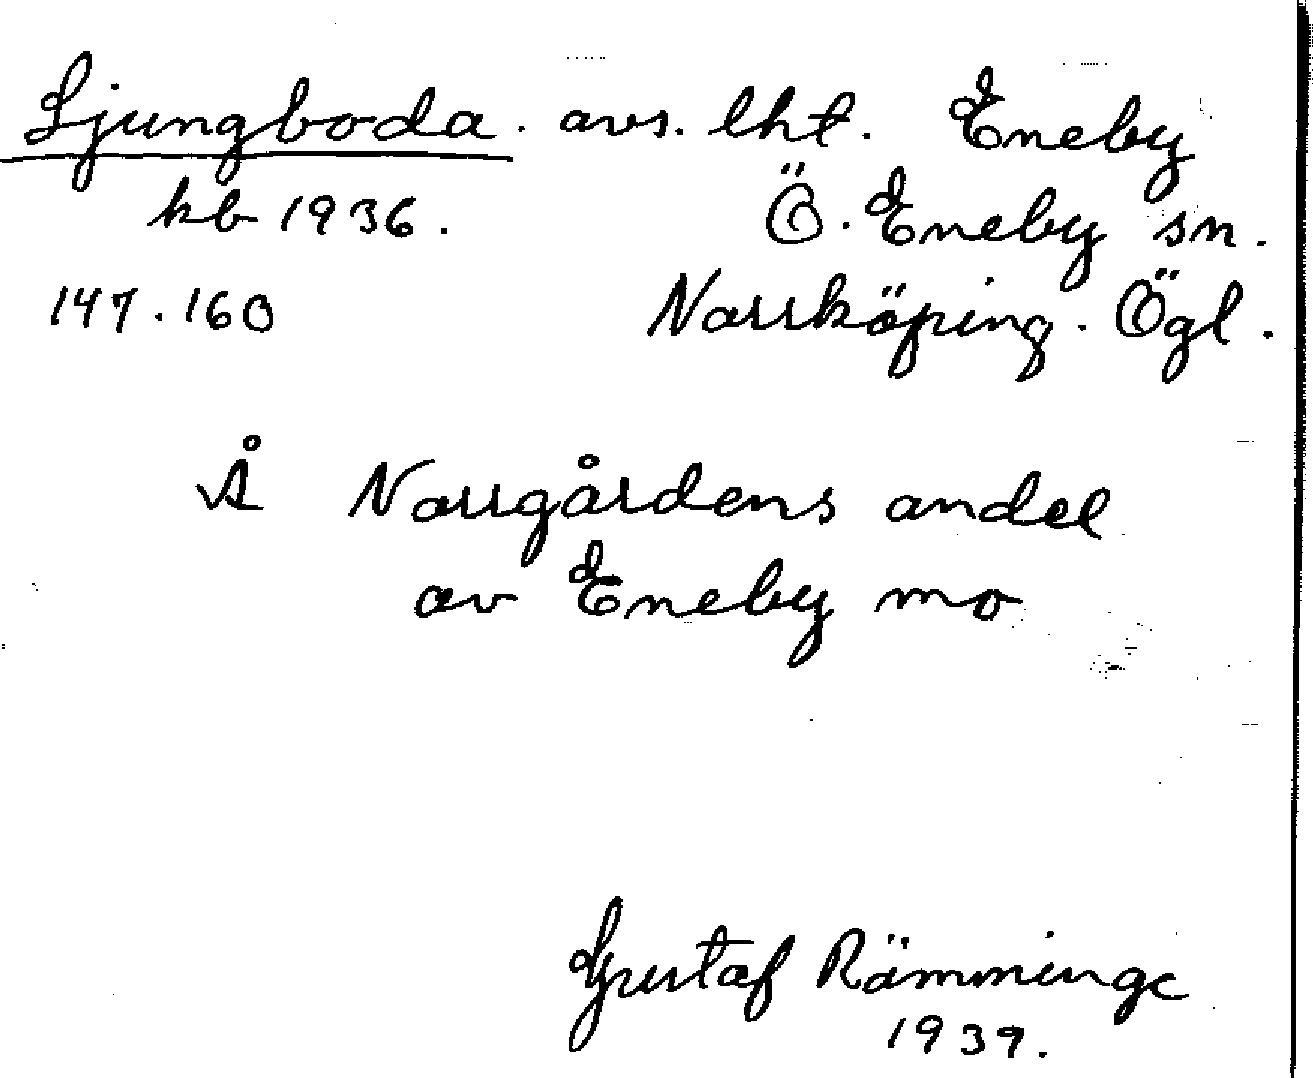 Ljungboda. avs. lht. Eneby
kb 1936. Ö. Eneby sn.
147.160 Norrköping. Ögl.
Å Norrgårdens andel
av Eneby mo
Gustaf Rämminge
1939.